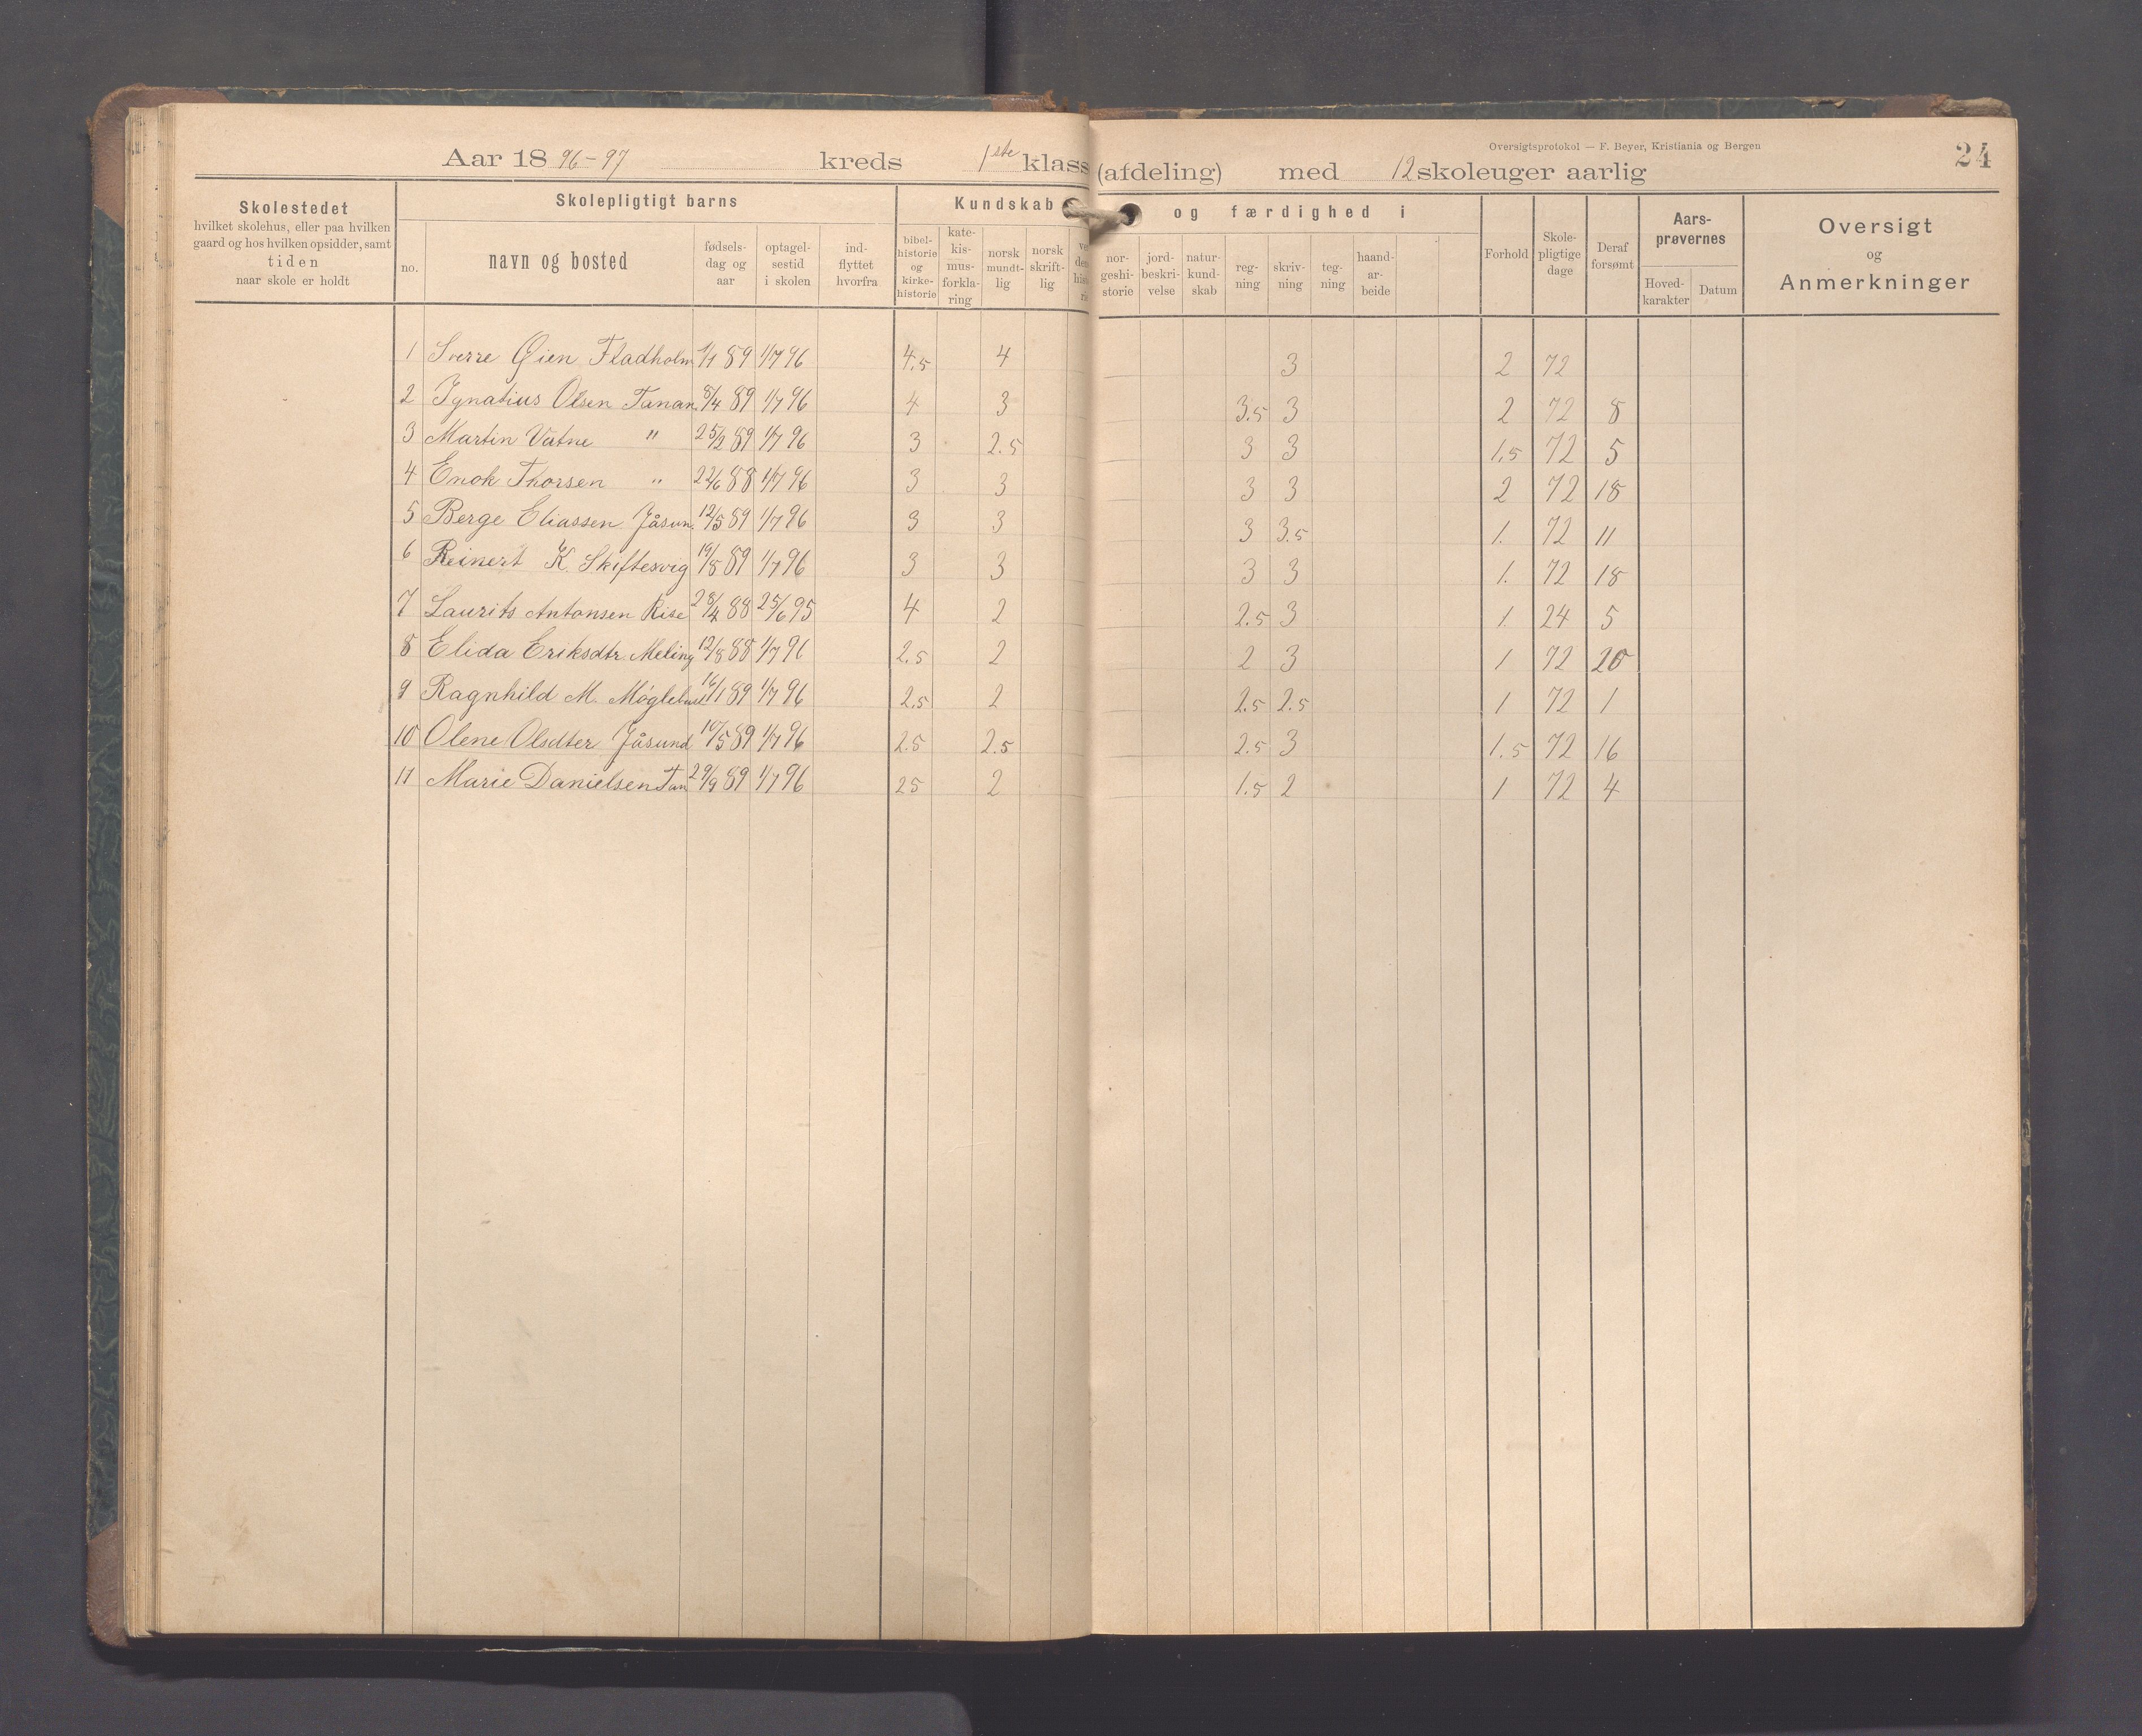 Oversigtsprotokol — F. Beyer, Kristiania og Bergen
24
Aar 18 96-97 kreds 1ste klasse (afdeling) med 12 skoleuger aarlig
Skolestedet
hvilket skolehus, eller paa hvilken
gaard og hos hvilken opsidder, samt
tiden
naar skole er holdt
Skolepligtigt barns
no.
navn og bosted
fødsels-
dag og
aar
optagel-
sestid
i skolen
ind-
flyttet
hvorfra
Kundskab og færdighed i
bibel-
historie
og
kirke-
historie
kate-
kis-
mus-
forkla-
ring
norsk
mundt-
lig
norsk
skrift-
lig
nor-
geshi-
storie
jord-
beskri-
velse
natur-
kund-
skab
reg-
ning
skriv-
ning
teg-
ning
haand-
ar-
beide
Forhold
Skole-
pligtige
dage
Deraf
forsømt
Aars-
prøvernes
Hoved-
karakter
Datum
Oversigt
og
Anmerkninger
1 Sverre Øien Fladholm 1/1 89 1/7 96 4.5 4 3 2 72
2 Ignatius Olsen Tanan 8/4 89 1/7 96 4 3 3.5 3 2 72 8
3 Martin Vatne " 25/2 89 1/7 96 3 2.5 3 3 1.5 72 5
4 Enok Thorsen " 88 1/7 96 3 3 3 3 2 72 18
5 Berge Eliassen Jåsun. 12/5 89 1/7 96 3 3 3 3.5 1. 72 11
6 Reinert K. Skiftesvig 19/8 89 1/7 96 3 3 3 3 1. 72 18
7 Laurits Antonsen Risc 28/4 88 25/6 95 4 2 2.5 3 1. 24 5
8 Elida Eriksdtr. Meling 12/8 88 1/7 96 2.5 2 2 3 1 72 20
9 Ragnhild M. 16/1 89 1/7 96 2.5 2 2.5 2.5 1 72 1
10 Olene Olsdter Jåsund 10/5 89 1/7 96 2.5 2.5 2.5 3 1.5 72 16
11 Marie Danielsen Tan 29/9 89 1/7 96 25 2 1.5 2 1 72 4